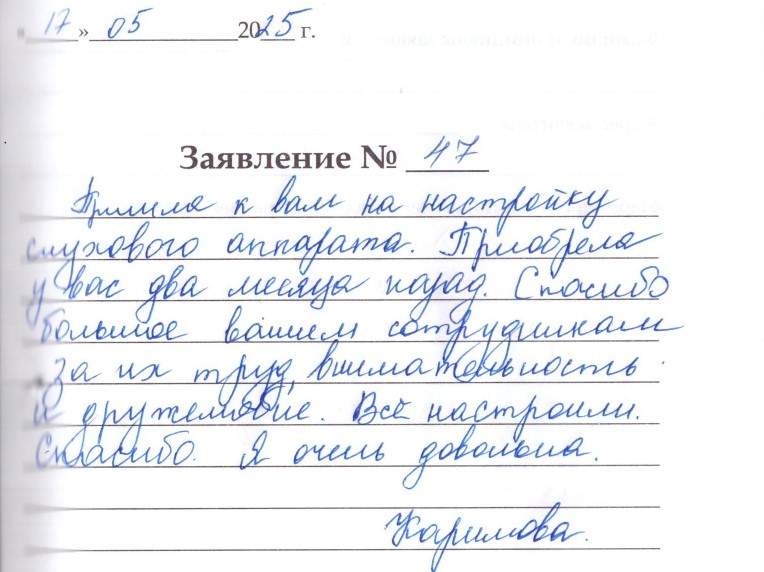 «17» 05 2025 г.
Заявление № 47
Пришла к вам на настройку
слухового аппарата. Приобрела
у вас два месяца назад. Спасибо
большое вашем сотрудникам
за их труд, внимательность
и дружелюбие. Всё настроили.
Спасибо. Я очень довольна.
Каримова.